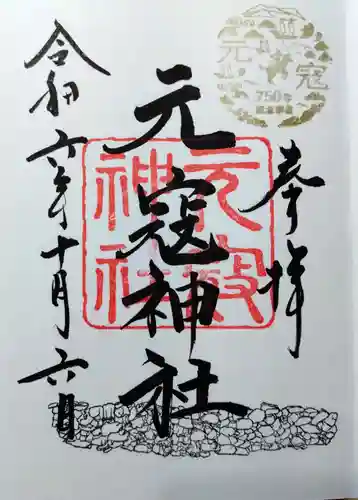 奉拝
元寇神社
令和六年十月六日
元寇
神社
元寇
750年